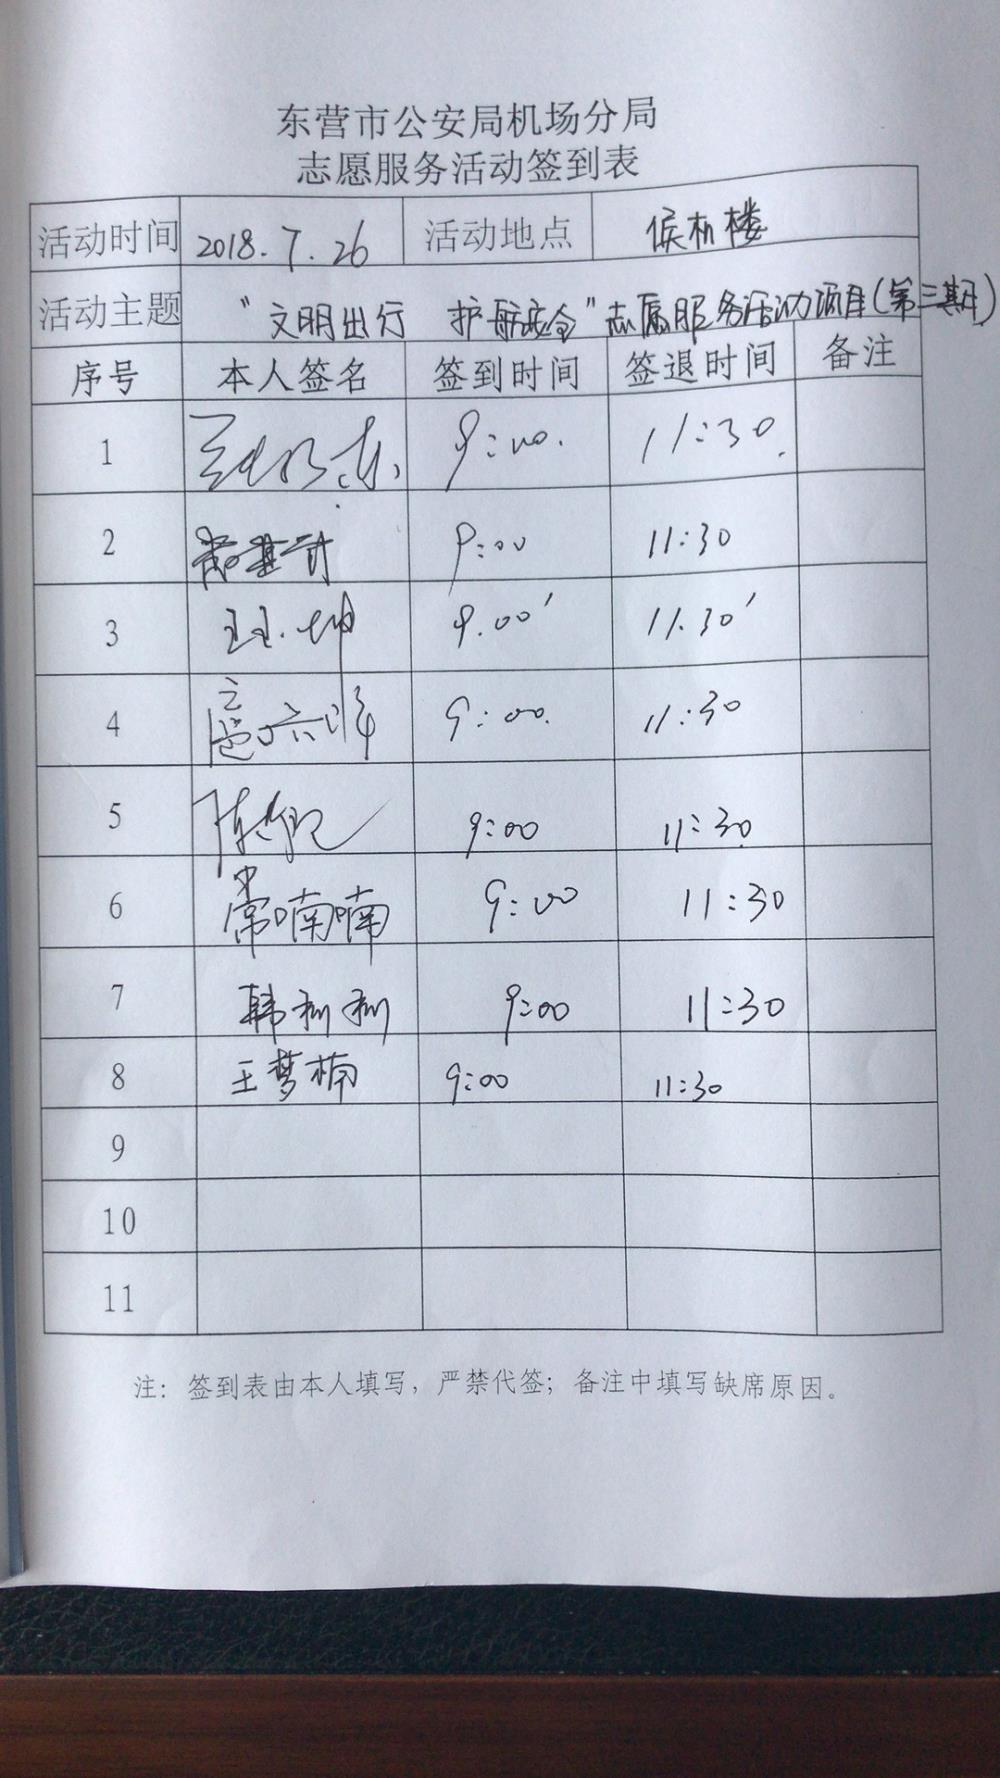 东营市公安局机场分局
志愿服务活动签到表
活动时间 2018.7.26 活动地点 候机楼
活动主题 "文明出行 护航安全"志愿服务活动项目(第三期)
序号 本人签名 签到时间 签退时间 备注
1 9:00. 11:30.
2 9:00 11:30
3 王王坤 9.00' 11.30'
4 9:00. 11:30
5 9:00 11:30
6 常喃喃 9:00 11:30
7 韩 9:00 11:30
8 王梦楠 9:00 11:30
9
10
11
注：签到表由本人填写，严禁代签；备注中填写缺席原因。